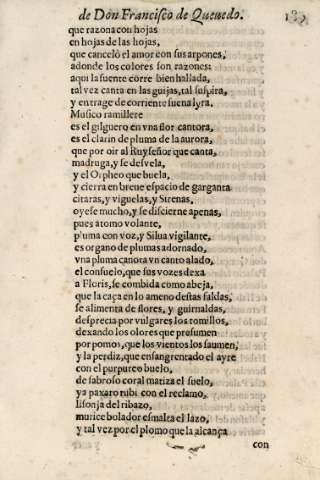 de Don Francisco de Queuedo.
que razona con hojas
en hojas de las hojas,
que canceló el amor con sus arpones,
adonde los colores son razones:
aqui la fuente corre bien hallada,
tal vez canta en las guijas, tal suspira,
y en trage de corriente suena lyra.
Musico ramillete
es el gilguero en vna flor cantora,
es el clarin de pluma de la aurora,
que por oir al Ruyseñor que canta,
madruga, y se desvela,
y el Orpheo que buela,
y cierra en breue espacio de garganta
citaras, y viguelas, y Sirenas,
oyese mucho, y se discierne apenas,
pues atomo volante,
pluma con voz, y Silua vigilante,
es organo de plumas adornado,
vna pluma canora vn canto alado,
el consuelo, que sus vozes dexa
a Floris, se combida como abeja,
que la caça en lo ameno destas faldas,
se alimenta de flores, y guirnaldas,
desprecia por vulgares los tomillos,
dexando los olores que presumen
por pomos, que los vientos los saumen,
y la perdiz, que ensangrentado el ayre
con el purpureo buelo,
de sabroso coral matiza el suelo,
ya paxaro rubi con el reclamo,
lisonja del ribazo,
murice bolador esmalta el lazo,
y tal vez por el plomo que la alcança
con